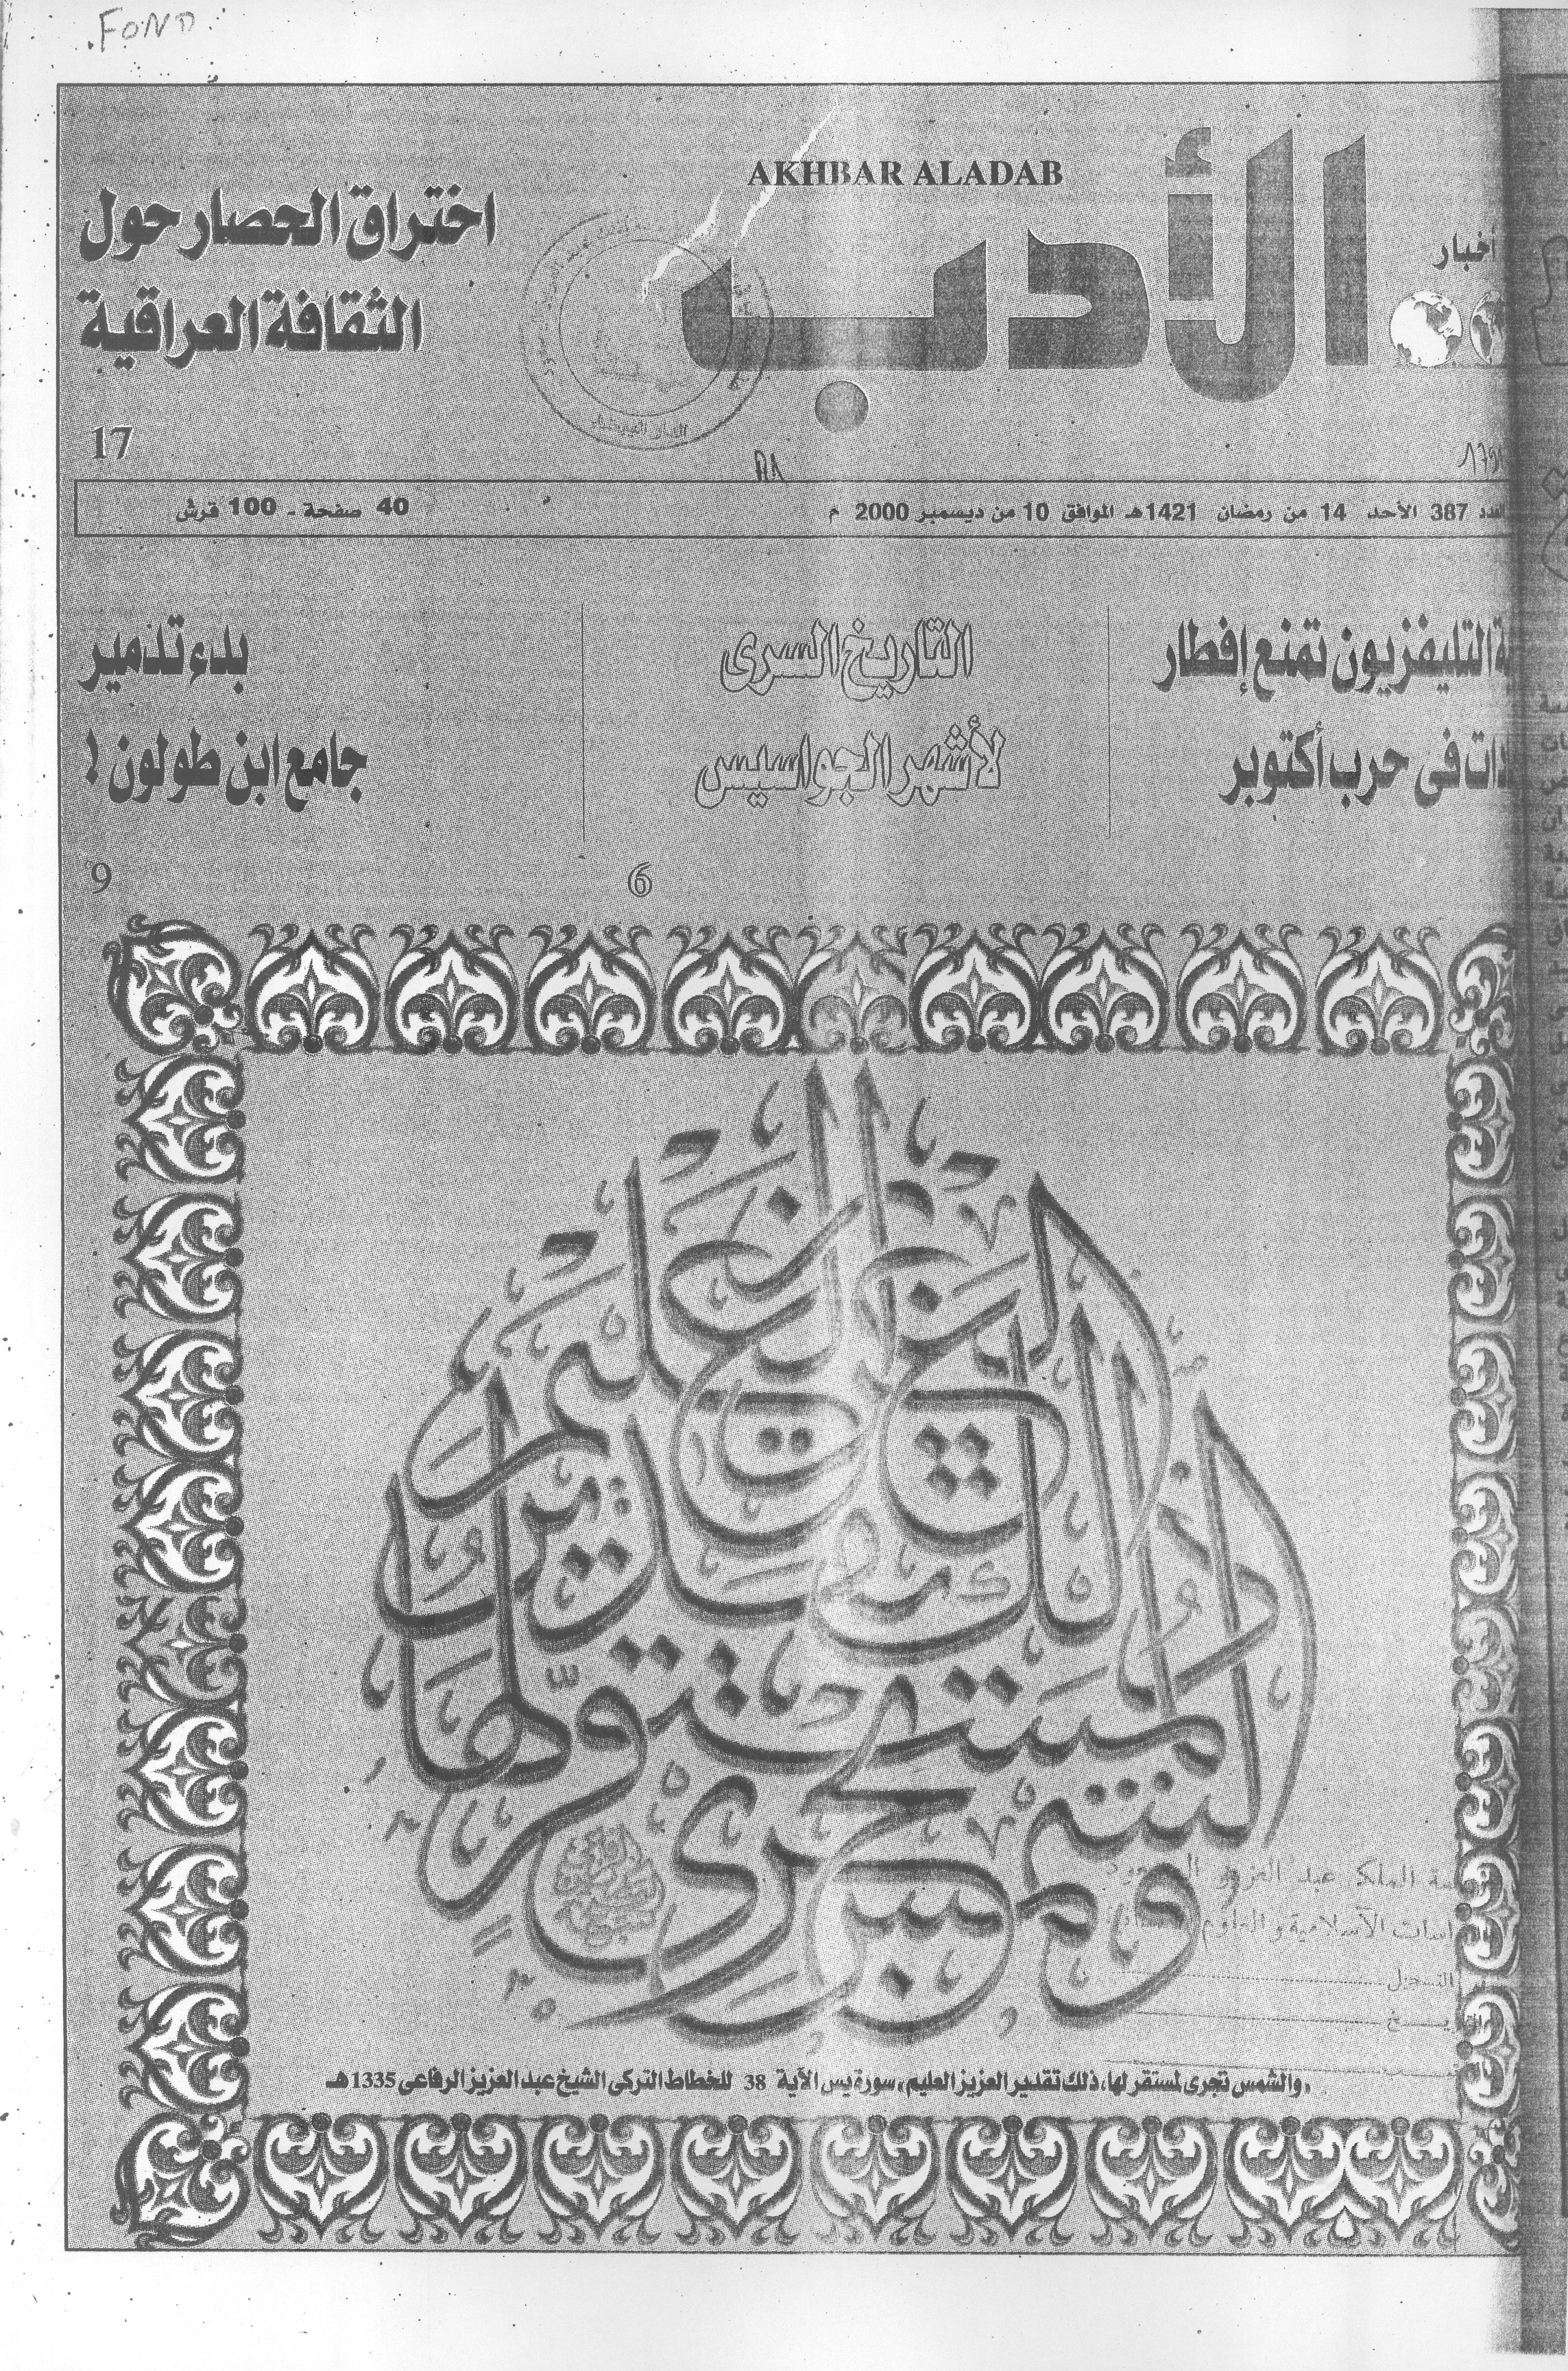 FOND
AKHBAR ALADAB
أخبار
الأدب
اختراق الحصار حول
الثقافة العراقية
17
387 الأحد 14 من رمضان 1421هـ الموافق 10 من ديسمبر 2000 م
40 صفحة - 100 قرش
التليفزيون تمنع إفطار
فى حرب أكتوبر
التاريخ السرى
لأشهر الجواسيس
6
بدء تدمير
جامع ابن طولون!
9
والشمس تجري لمستقر لها ذلك تقدير العزيز العليم
الملك عبد العزيز
الآسلامية والعلوم
التسجيل
«والشمس تجرى لمستقر لها، ذلك تقدير العزيز العليم» سورة يس الآية 38 للخطاط التركى الشيخ عبد العزيز الرفاعى 1335هـ